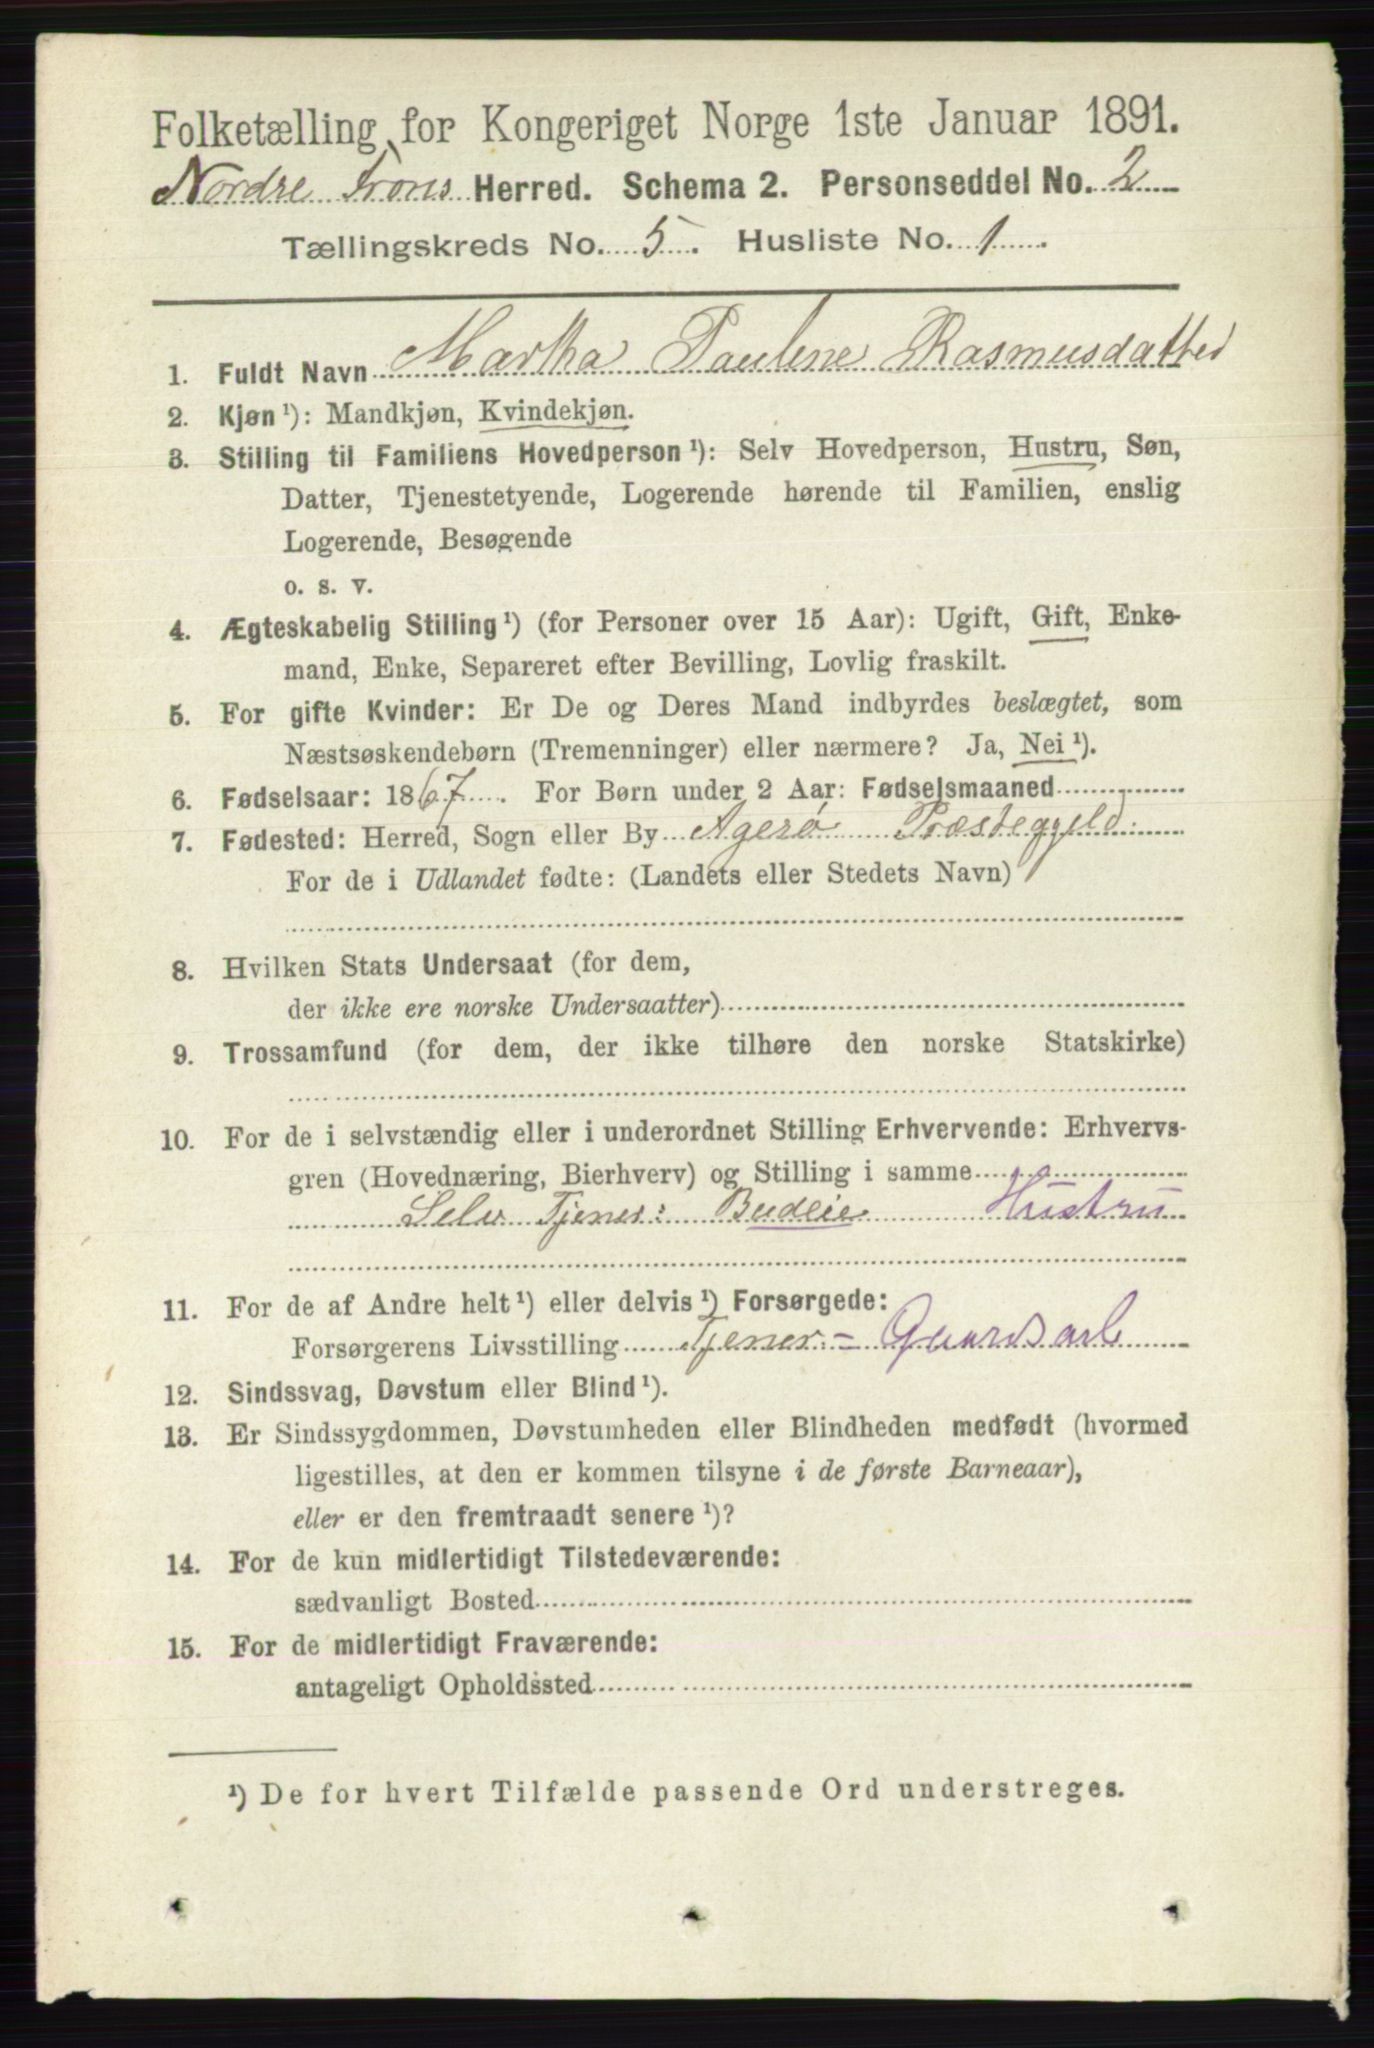 Folketælling for Kongeriget Norge 1ste Januar 1891.
Nordre Frons Herred. Schema 2. Personseddel No. 2
Tællingskreds No. 5. Husliste No. 1.
1. Fuldt Navn Martha Pauline Rasmusdatter
2. Kjøn ¹): Mandkjøn, Kvindekjøn.
3. Stilling til Familiens Hovedperson ¹): Selv Hovedperson, Hustru, Søn,
Datter, Tjenestetyende, Logerende hørende til Familien, enslig
Logerende, Besøgende
o. s. v.
4. Ægteskabelig Stilling ¹) (for Personer over 15 Aar): Ugift, Gift, Enke-
mand, Enke, Separeret efter Bevilling, Lovlig fraskilt.
5. For gifte Kvinder: Er De og Deres Mand indbyrdes beslægtet, som
Næstsøskendebørn (Tremenninger) eller nærmere? Ja, Nei ¹).
6. Fødselsaar: 1867. For Børn under 2 Aar: Fødselsmaaned
7. Fødested: Herred, Sogn eller By Agerø Præstegjeld.
For de i Udlandet fødte: (Landets eller Stedets Navn)
8. Hvilken Stats Undersaat (for dem,
der ikke ere norske Undersaatter)
9. Trossamfund (for dem, der ikke tilhøre den norske Statskirke)
10. For de i selvstændig eller i underordnet Stilling Erhvervende: Erhvervs-
gren (Hovednæring, Bierhverv) og Stilling i samme
Selv Tjener: Budeie Hustru
11. For de af Andre helt ¹) eller delvis ¹) Forsørgede:
Forsørgerens Livsstilling Tjener = Gaardsarb
12. Sindssvag, Døvstum eller Blind ¹).
13. Er Sindssygdommen, Døvstumheden eller Blindheden medfødt (hvormed
ligestilles, at den er kommen tilsyne i de første Barneaar),
eller er den fremtraadt senere ¹)?
14. For de kun midlertidigt Tilstedeværende:
sædvanligt Bosted
15. For de midlertidigt Fraværende:
antageligt Opholdssted
¹) De for hvert Tilfælde passende Ord understreges.